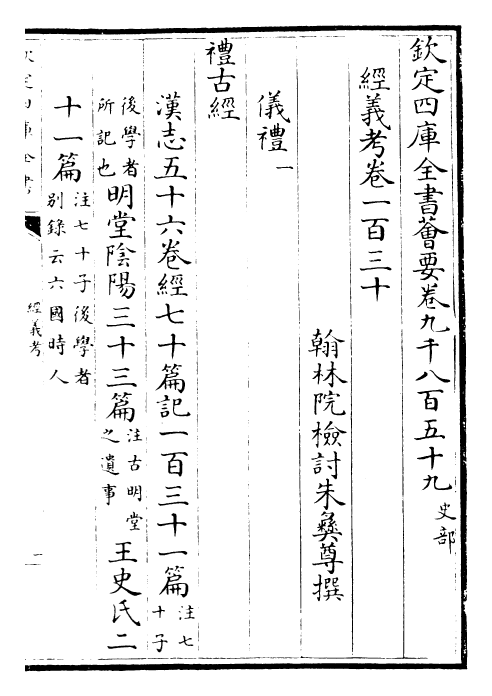 欽定四庫全書薈要卷九千八百五十九 史部
經義考卷一百三十
翰林院檢討朱彝尊撰
儀禮一
禮古經
漢志五十六卷經七十篇記一百三十一篇 注七十子
後學者所記也 明堂陰陽三十三篇 注古明堂之遺事 王史氏二
十一篇 注七十子後學者別錄云六國時人
欽定四庫全書
經義考